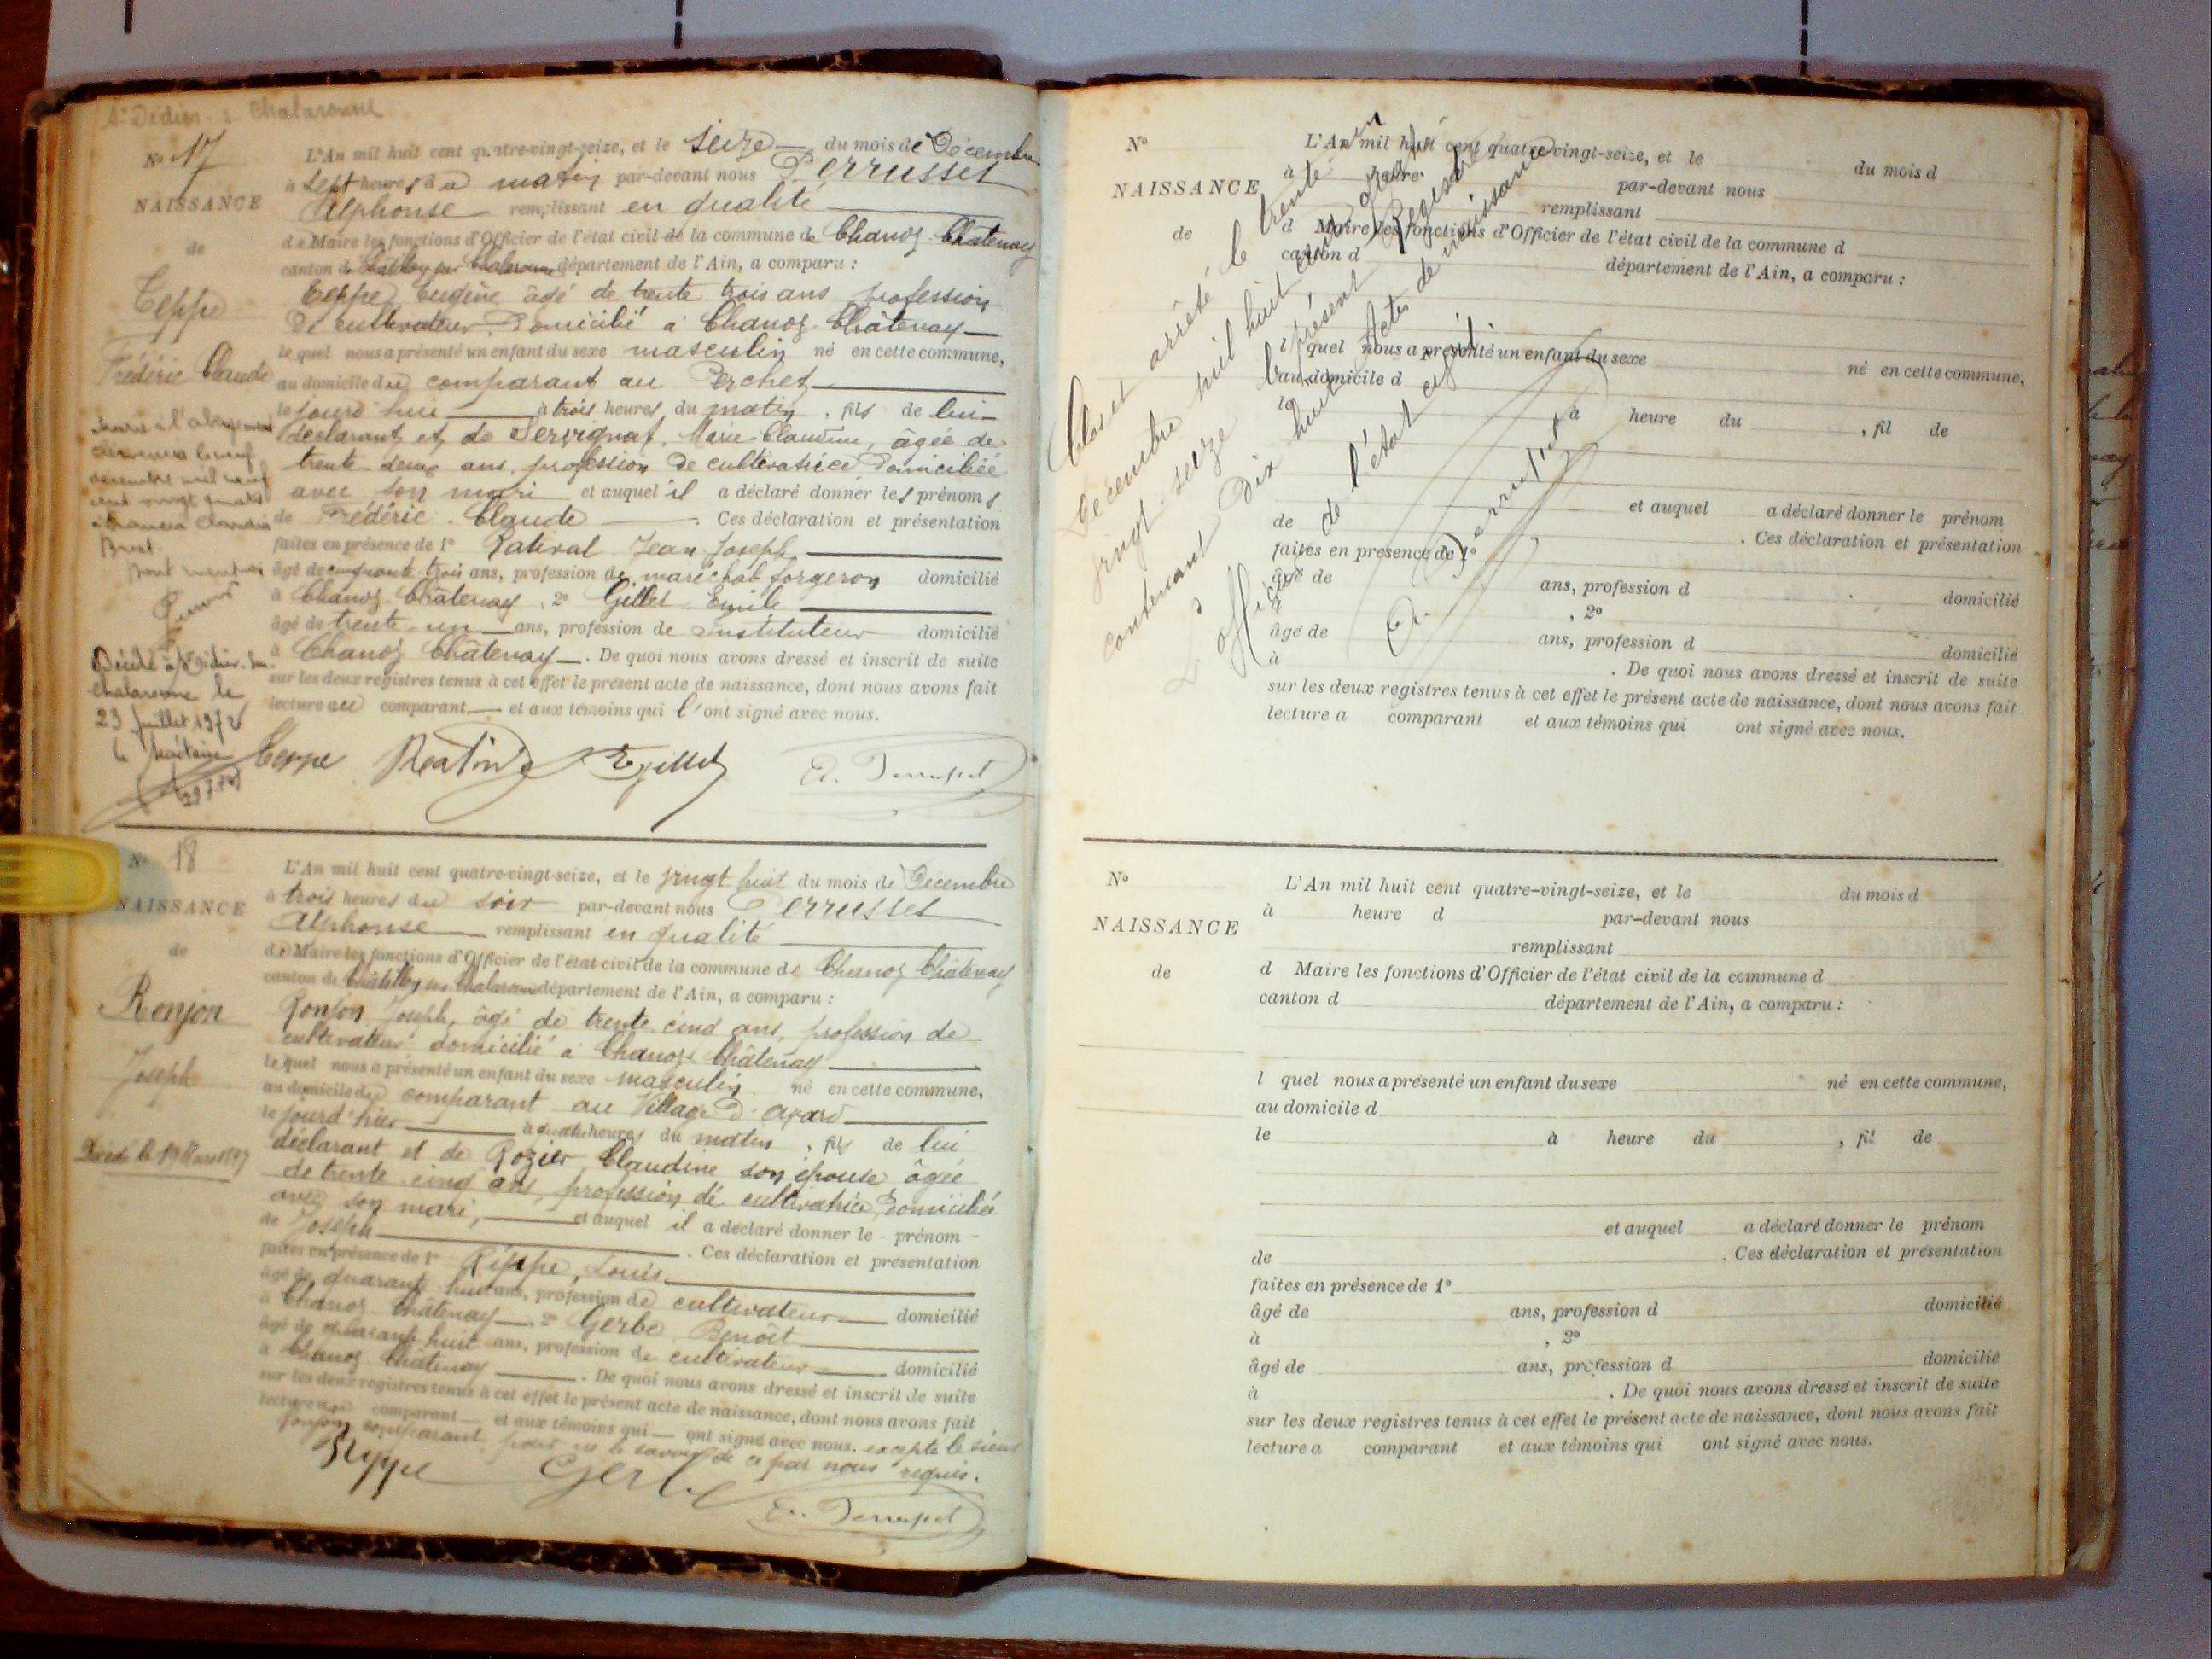 St Didier-s-Chalaronne
No 17
NAISSANCE
de
Teppe
Frédéric Claude
décembre mil neuf
cent vingt quatre
à Francia Claudia
Décédé à St Didier-sur-
Chalaronne le
23 juillet 1972
L'An mil huit cent quatre-vingt-seize, et le seize du mois de Décembre
à sept heures du matin par-devant nous Perrusset
Alphonse remplissant en qualité
de Maire les fonctions d'Officier de l'état civil de la commune de Chanoz-Châtenay
canton de Châtillon sur Chalaronne département de l'Ain, a comparu :
Teppe Eugène âgé de trente trois ans profession
de cultivateur domicilié à Chanoz-Châtenay
lequel nous a présenté un enfant du sexe masculin né en cette commune,
au domicile du comparant au Perchet
le jourd'hui à trois heures du matin, fils de lui
déclarant et de Servignat, Marie-Claudine, âgée de
trente deux ans, profession de cultivatrice domiciliée
avec son mari et auquel il a déclaré donner les prénoms
de Frédéric Claude. Ces déclaration et présentation
faites en présence de 1º Jean Joseph
âgé de cinquante trois ans, profession de maréchal forgeron domicilié
à Chanoz Châtenay, 2º Gillet Emile
âgé de trente un ans, profession de Instituteur domicilié
à Chanoz Châtenay. De quoi nous avons dressé et inscrit de suite
sur les deux registres tenus à cet effet le présent acte de naissance, dont nous avons fait
lecture au comparant et aux témoins qui l'ont signé avec nous.
Teppe E Gillet A. Perrusset
No 18
NAISSANCE
de
Renjon
Joseph
Décédé le 19 Mars 1897
L'An mil huit cent quatre-vingt-seize, et le vingt huit du mois de Décembre
à trois heures du soir par-devant nous Perrusset
Alphonse remplissant en qualité
de Maire les fonctions d'Officier de l'état civil de la commune de Chanoz Châtenay
canton de Châtillon sur Chalaronne département de l'Ain, a comparu :
Ronjon Joseph, âgé de trente cinq ans, profession de
cultivateur domicilié à Chanoz Châtenay
lequel nous a présenté un enfant du sexe masculin né en cette commune,
au domicile du comparant au Village d'
le jourd'hier à quatre heures du matin, fils de lui
déclarant et de Rozier Claudine son épouse âgée
de trente cinq ans, profession de cultivatrice, domiciliée
avec son mari, et auquel il a déclaré donner le prénom
de Joseph. Ces déclaration et présentation
faites en présence de 1º Réppe, Louis
âgé de quarante huit ans, profession de cultivateur domicilié
à Chanoz Châtenay, 2º Gerbe Benoît
âgé de quarante huit ans, profession de cultivateur domicilié
à Chanoz Châtenay. De quoi nous avons dressé et inscrit de suite
sur les deux registres tenus à cet effet le présent acte de naissance, dont nous avons fait
lecture au comparant et aux témoins qui ont signé avec nous. excepté le sieur
Ronjon comparant pour ne le savoir de ce par nous requis.
Reppe Gerbe A. Perrusset
No
NAISSANCE
de
L'An mil huit cent quatre-vingt-seize, et le du mois d
à heure par-devant nous
remplissant
d Maire les fonctions d'Officier de l'état civil de la commune d
canton d département de l'Ain, a comparu :
l quel nous a présenté un enfant du sexe né en cette commune,
au domicile d
le à heure du , fil de
et auquel a déclaré donner le prénom
de . Ces déclaration et présentation
faites en présence de 1º
âgé de ans, profession d domicilié
à , 2º
âgé de ans, profession d domicilié
à . De quoi nous avons dressé et inscrit de suite
sur les deux registres tenus à cet effet le présent acte de naissance, dont nous avons fait
lecture a comparant et aux témoins qui ont signé avec nous.
Clos et arrêté le trente un
Décembre mil huit cent quatre
vingt seize le présent Registre
contenant Dix huit Actes de naissance
L'officier de l'état civil.
A. Perrusset
No
NAISSANCE
de
L'An mil huit cent quatre-vingt-seize, et le du mois d
à heure d par-devant nous
remplissant
d Maire les fonctions d'Officier de l'état civil de la commune d
canton d département de l'Ain, a comparu :
l quel nous a présenté un enfant du sexe né en cette commune,
au domicile d
le à heure du , fil de
et auquel a déclaré donner le prénom
de . Ces déclaration et présentation
faites en présence de 1º
âgé de ans, profession d domicilié
à , 2º
âgé de ans, profession d domicilié
à . De quoi nous avons dressé et inscrit de suite
sur les deux registres tenus à cet effet le présent acte de naissance, dont nous avons fait
lecture a comparant et aux témoins qui ont signé avec nous.